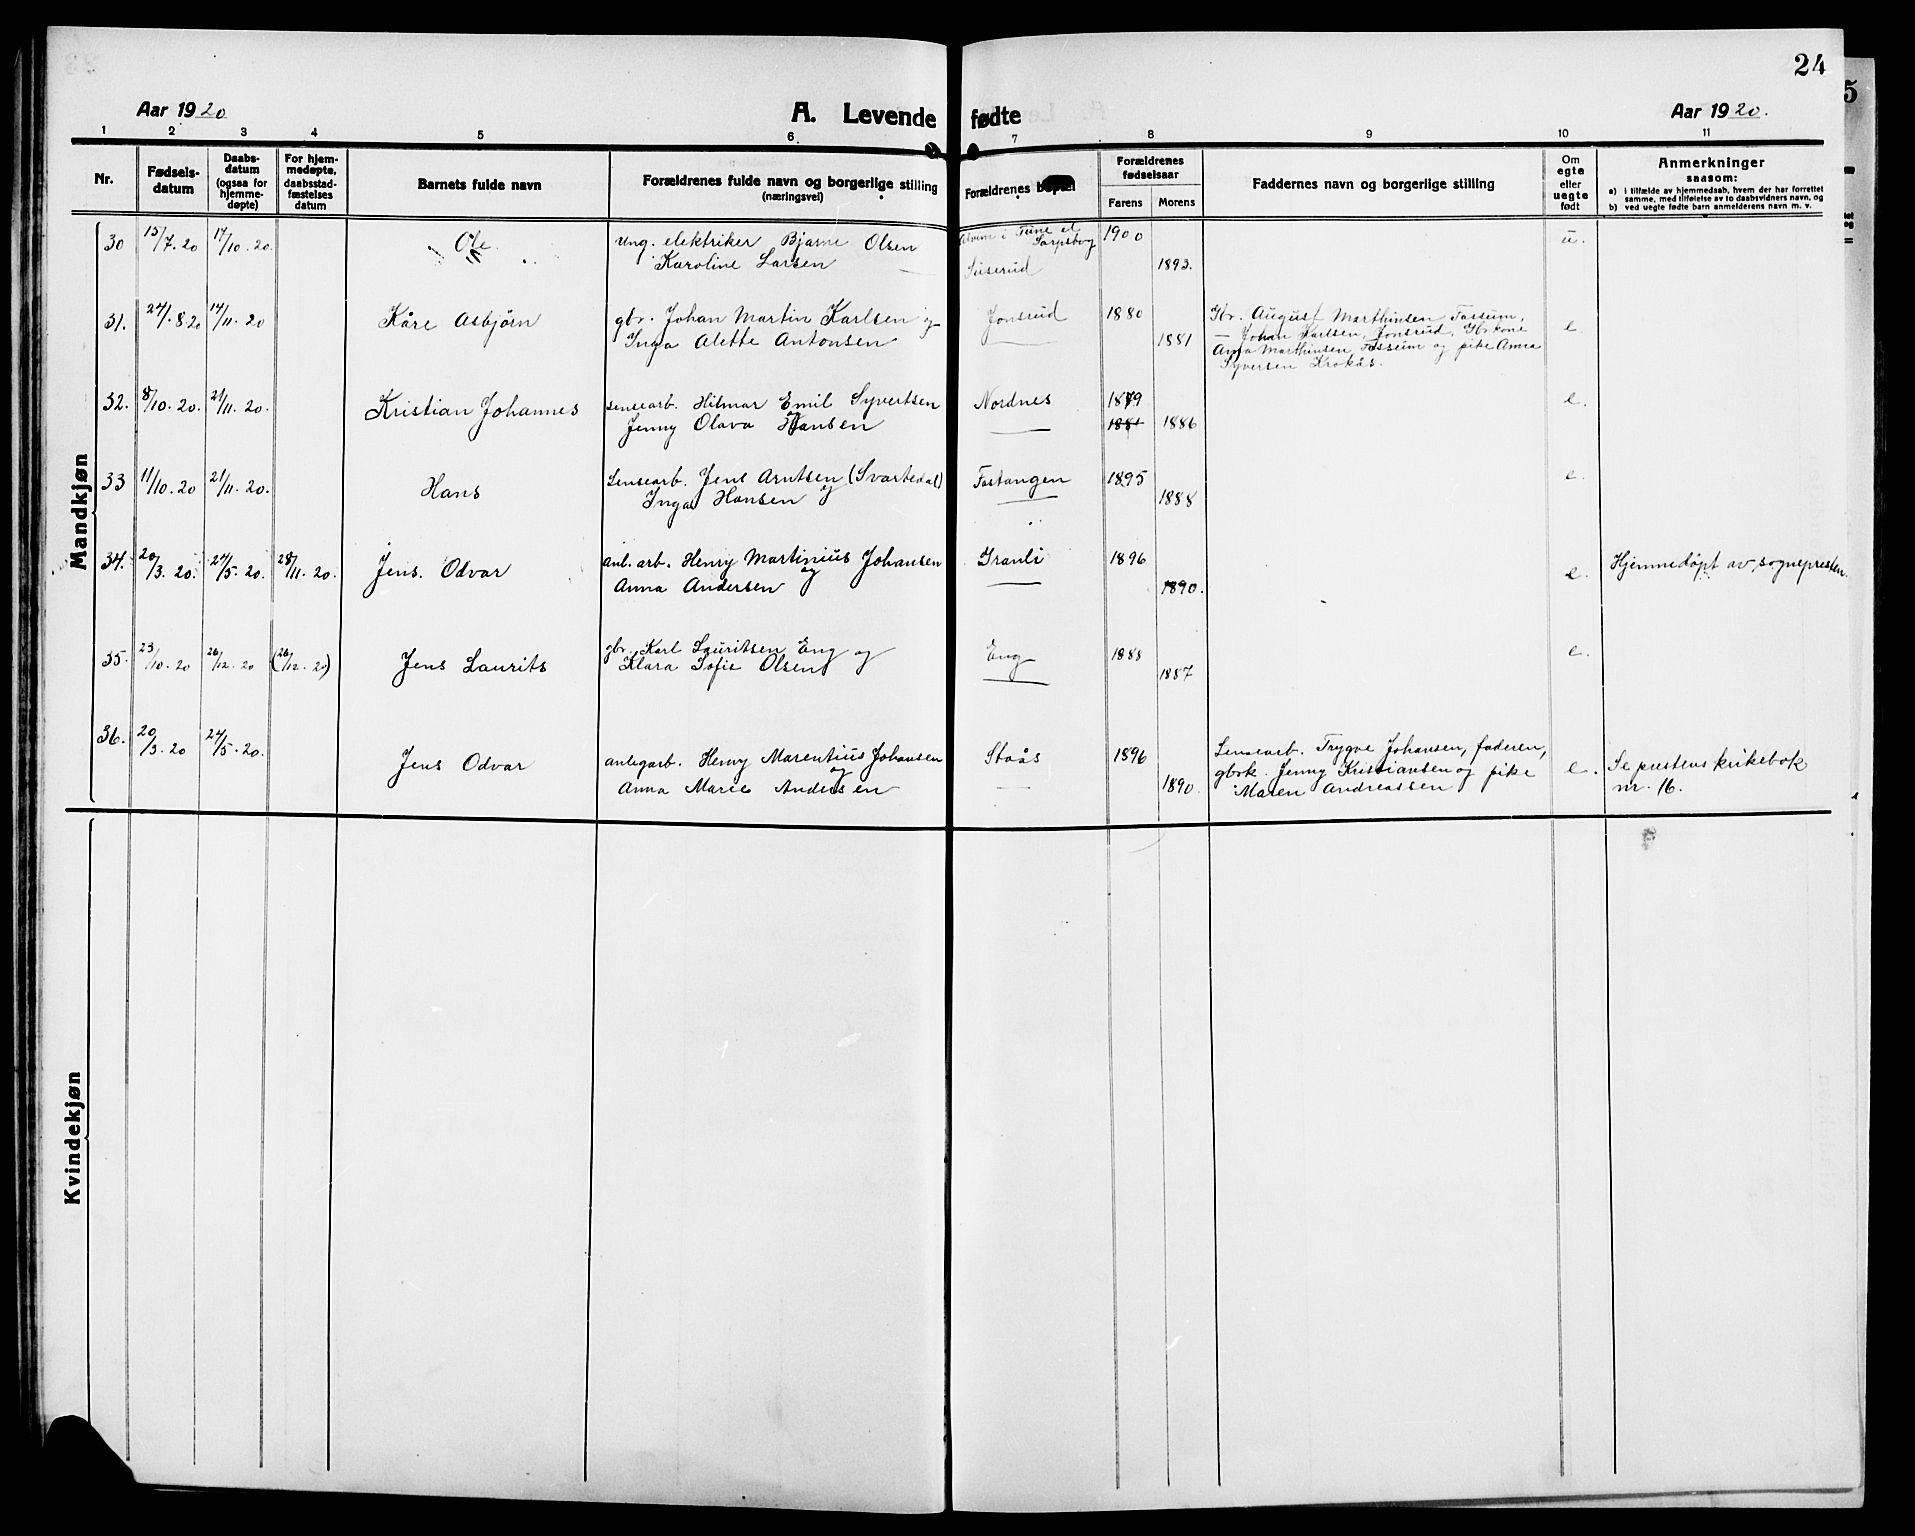 24
Aar 1920
A. Levende fødte
Aar 1920.
1 2 3 4 5 6 7 8 9 10 11
Nr.
Fødsels-
datum
Daabs-
datum
(ogsaa for
hjemme-
døpte)
For hjem-
medøpte,
daabsstad-
fæstelses
datum
Barnets fulde navn
Forældrenes fulde navn og borgerlige stilling
(næringsvei)
Forældrenes
Forældrenes
fødselsaar
Farens Morens
Faddernes navn og borgerlige stilling
Om
egte
eller
uegte
født
Anmerkninger
saasom:
a) i tilfælde av hjemmedaab, hvem der har forrettet
samme, med tilføielse av to daabsvidners navn, og
b) ved uegte fødte barn anmelderens navn m. v.
Mandkjøn
30 15/7.20 17/10.20. Ole ung. elektriker Bjarne Olsen i Tune el 1900 u.
Sarpsborg
Karoline Larsen Süserud 1893.
31. 24/8.20 14/11.20 Kåre Asbjørn gbr. Johan Martin Karlsen og Jonsrud 1880 Gbr. August Marthinsen Fossum, e.
Inga Alette Antonsen 1881 — Johan Karlsen, Jonsrud, Gbrkone
Anna Marthinsen Fossum og pike Anna
Syversen Krokås.
32. 8/10.20. 21/11.20. Kristian Johannes sensearb. Hilmar Emil Syvertsen Nordnes 1879 e.
og
Jenny Olava Hansen 1881 1886
33 11/10.20 21/11.20. Hans Sensearb. Jens Arntsen (Svartedal) Fostangen 1895 e.
og
Inga Hansen 1888
34. 20/3.20. 24/5.20. 28/11.20. Jens. Odvar anl. arb. Henry Martinius Johansen Granli 1896 e. Hjemmedøpt av sognepresten.
og
Anna Andersen 1890.
35. 23/10.20 26/12.20 (26/12.20) Jens Laurits gbr. Karl Lauritsen Eng og Eng 1888 e.
Klara Sofie Olsen 1887
36. 20/3.20 24/5.20. Jens Odvar anlegarb. Henry Marentius Johansen Staås 1896 Sensearb. Trygve Johansen, faderen, e. Se prestens kirkebok
og
Anna Marie Andersen 1890. gbrk. Jenny Kristiansen og pike nr. 16.
Maren Andreassen
Kvindekjøn